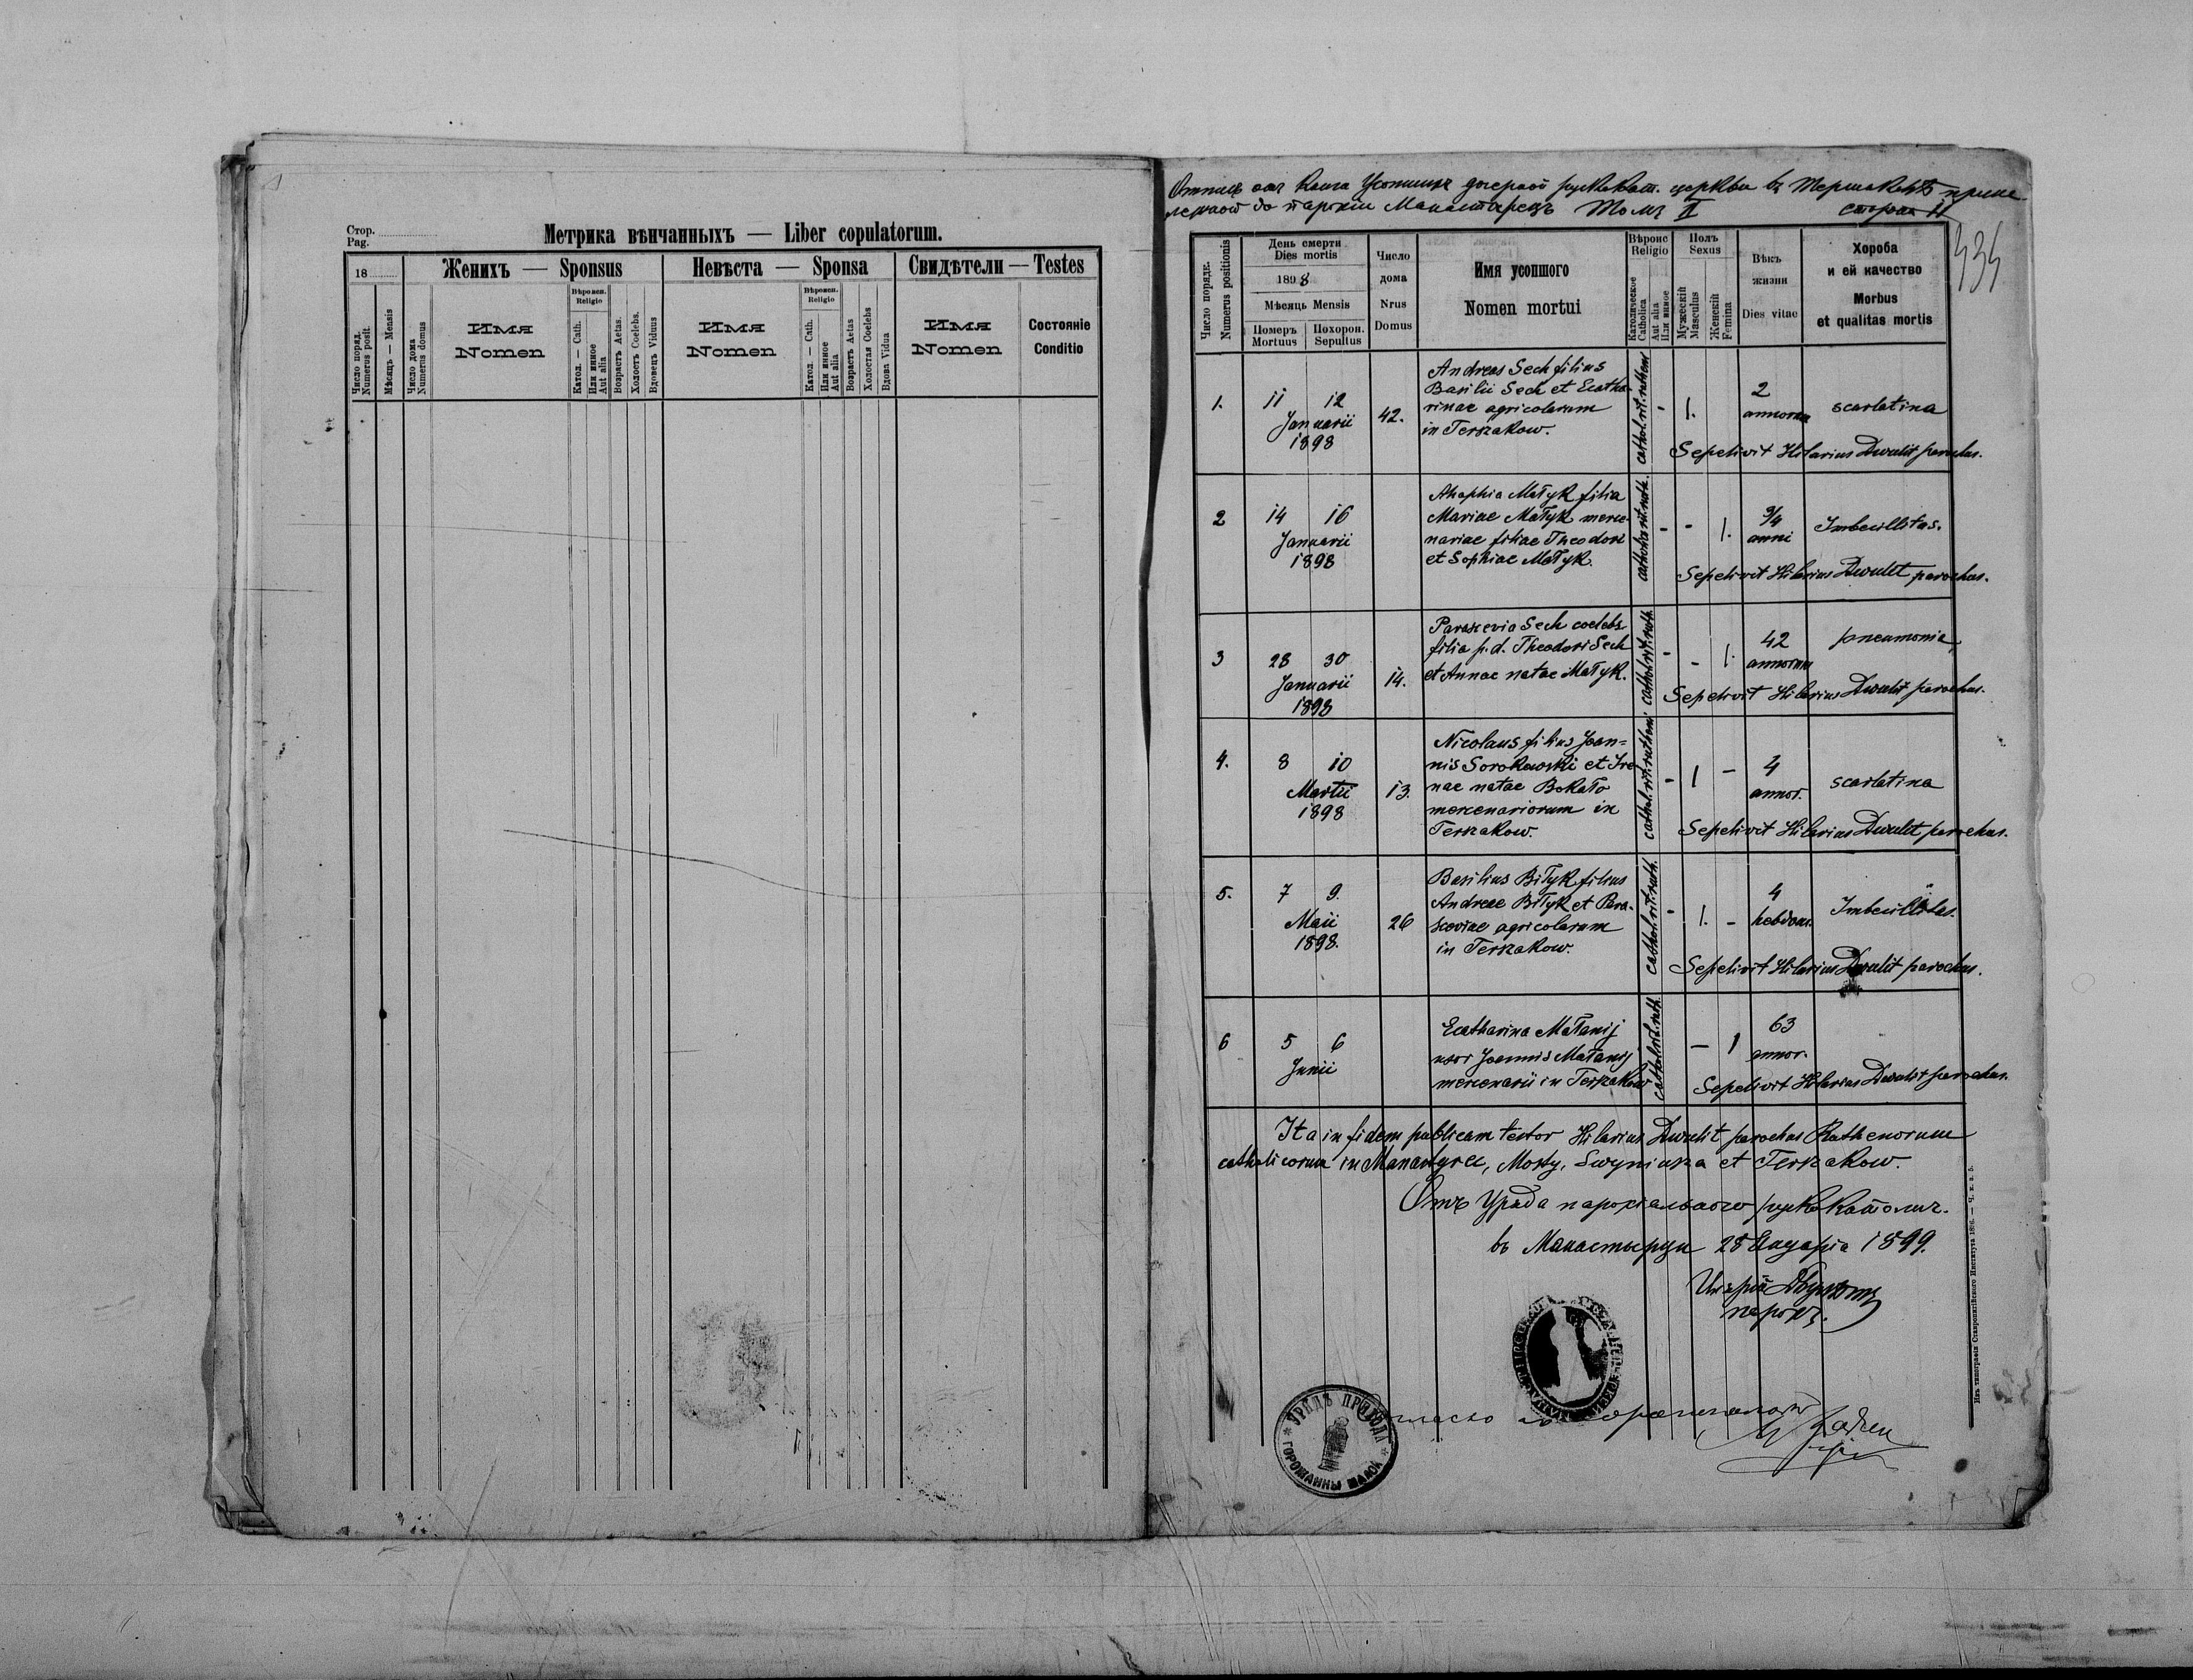 Стор.
Pag.
Метрика вѣнчанныхъ — Liber copulatorum.
18
Женихъ — Sponsus
Невѣста — Sponsa
Свидѣтели — Testes
Число поряд.
Numerus posit.
Мѣсяць — Mensis
Число дома
Numerus domus
Имя
Nomen
Вѣроисп.
Religio
Катол. — Cath.
Или инное
Aut alia
Возрастъ Aetas.
Холостъ Coelebs.
Вдовецъ Viduus
Имя
Nomen
Вѣроисп.
Religio
Катол. — Cath.
Или инное
Aut alia
Возрастъ Aetas
Холостая Coelebs
Вдова Vidua
Имя
Nomen
Состояніе
Conditio
церкви въ
до парохіи Манастырецъ Томъ II сторона 11
Число порядк.
Numerus positionis
День смерти
Dies mortis
1898
Мѣсяць Mensis
Померъ
Mortuus
Похорон.
Sepultus
Число
дома
Nrus
Domus
Имя усопшого
Nomen mortui
Вѣроис
Religio
Католическое
Catholica
Aut alia
Или инное
Полъ
Sexus
Мужескій
Masculus
Женскій
Femina
Вѣкъ
жизни
Dies vitae
Хороба
и ей качество
Morbus
et qualitas mortis
1. 11 12
Januarii
1898
42.
Andreas Sech filius
Basilii Sech et Ecatha-
rinae agricolarum
in Terszakow.
cathol. rit. ruthen
- 1.
2
annorum
scarlatina
Sepelivit Hilarius Dwulit parochus.
2 14 16
Januarii
1898
Ahaphia Małyk filia
Mariae Małyk merce-
nariae filiae Theodori
et Sophiae Małyk.
catholica rit. ruth.
- - 1.
9/4
anni
Imbecillitas.
Sepelivit Hilarius Dwulit parochus.
3 28 30
Januarii
1898
14.
Parascevia Sech coelebs
filia p.d. Theodori Sech
et Annae natae Małyk.
cathol. rit. ruth.
- - 1.
42
annorum
pneumonia
Sepelivit Hilarius Dwulit parochus.
4. 8 10
Martii
1898
13.
Nicolaus filius Joan=
nis Sorokowski et Ire-
nae natae Bokało
mercenariorum in
Terszakow.
cathol. rit. ruthen.
- 1 -
4
annor.
scarlatina
Sepelivit Hilarius Dwulit parochus.
5. 7 9.
Maii
1898.
26
Basilius Biłyk filius
Andreae Biłyk et Para-
sceviae agricolarum
in Terszakow.
cathol. rit. ruth.
- 1. -
4
hebdom.
Imbecillitas.
Sepelivit Hilarius Dwulit parochus.
6 5 6
Junii
Ecatharina Małanij
uxor Joannis Małanij
mercenarii in Terszakow
cathol. rit. ruth.
- 1
63
annor.
Sepelivit Hilarius Dwulit parochus.
Ita in fidem publicam testor Hilarius Dwulit parochus Ruthenorum
catholicorum in Manastyrec, Mosty, et Terszakow.
Отъ Уряда парохіального
въ Манастырци 28 Януарія 1899.
парохъ.
УРЯДЪ ПРИХОДА
Изъ типографіи Ставропигійского Института